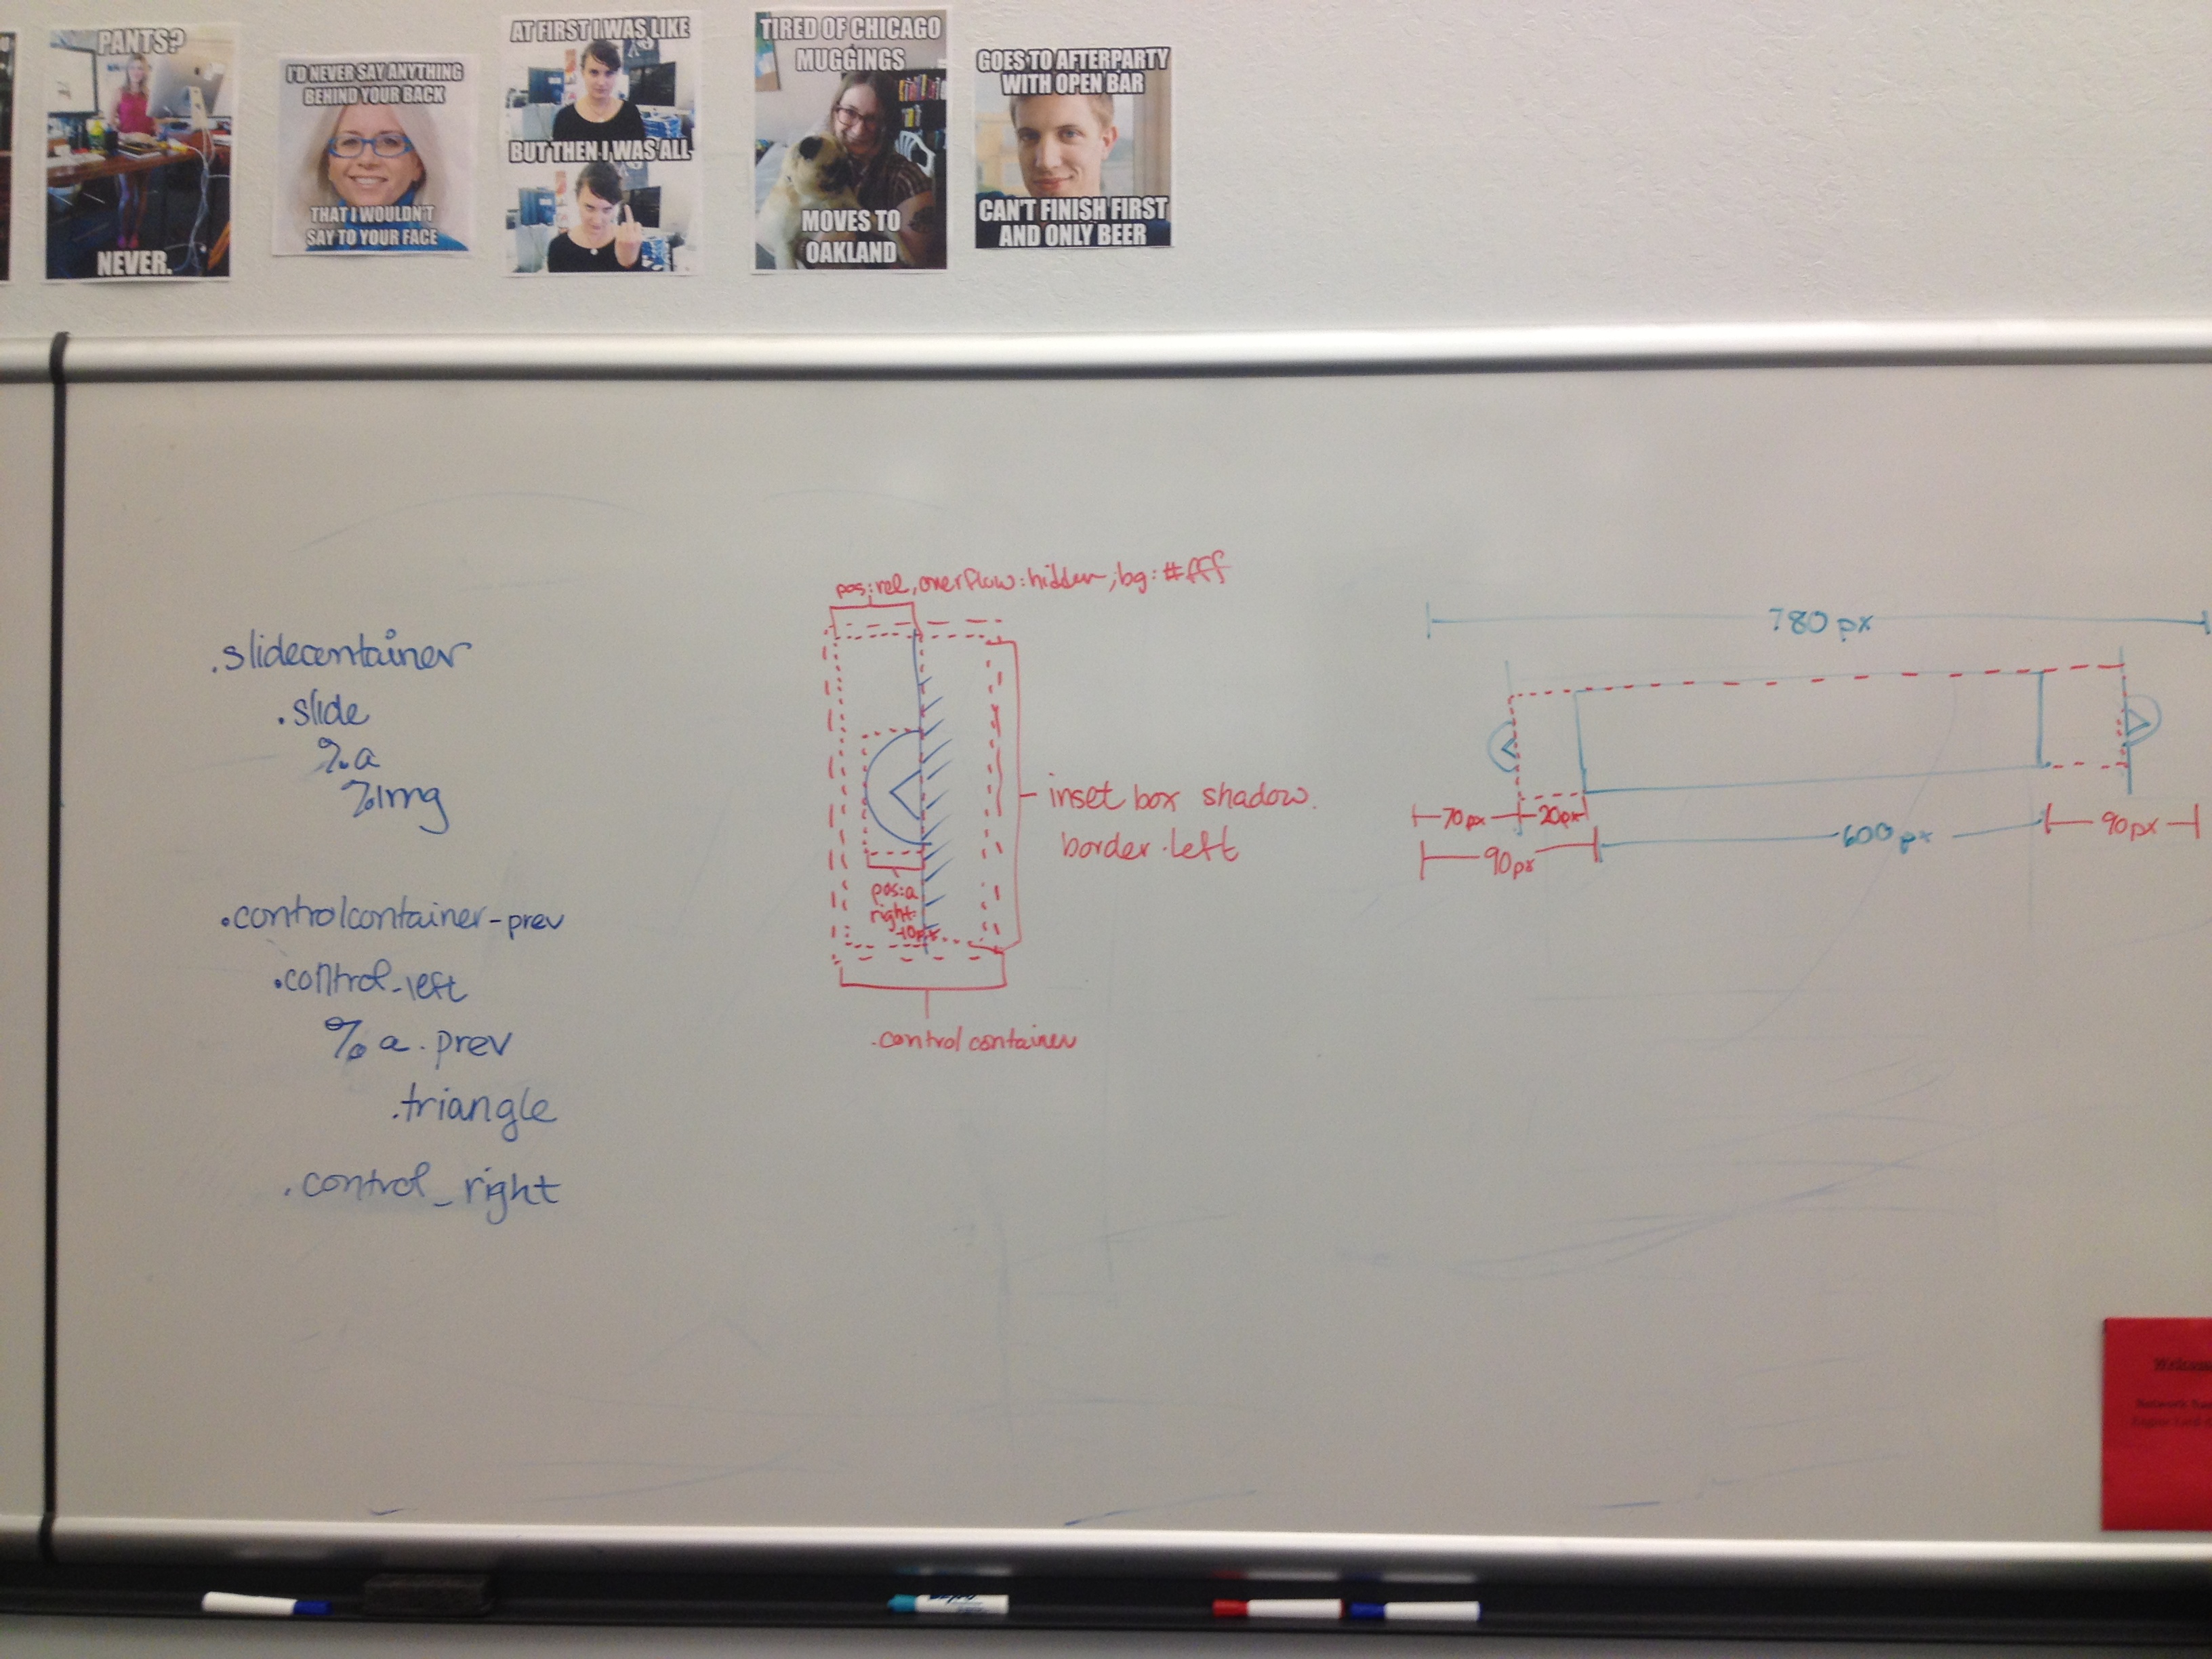 PANTS?
NEVER.
I'D NEVER SAY ANYTHING
BEHIND YOUR BACK
THAT I WOULDN'T
SAY TO YOUR FACE
AT FIRST I WAS LIKE
BUT THEN I WAS ALL
TIRED OF CHICAGO
MUGGINGS
MOVES TO
OAKLAND
GOES TO AFTERPARTY
WITH OPEN BAR
CAN'T FINISH FIRST
AND ONLY BEER
.slidecontainer
.slide
%a
%img
.controlcontainer-prev
.control-left
%a.prev
.triangle
.control_right
pos:rel, overflow:hidden; bg:#fff
inset box shadow.
border.left
pos:a
right:
-10px
.controlcontainer
780px
70px
20px
90px
600px
90px